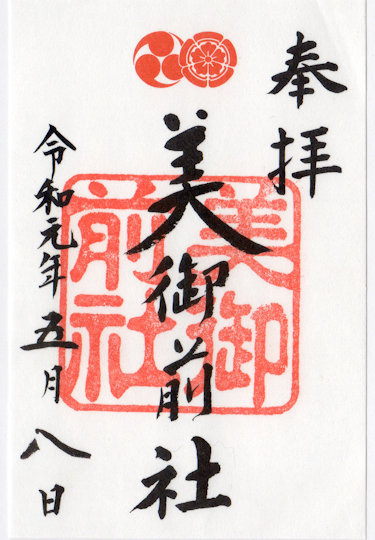 奉拝
美御前社
美御前社
令和元年五月八日